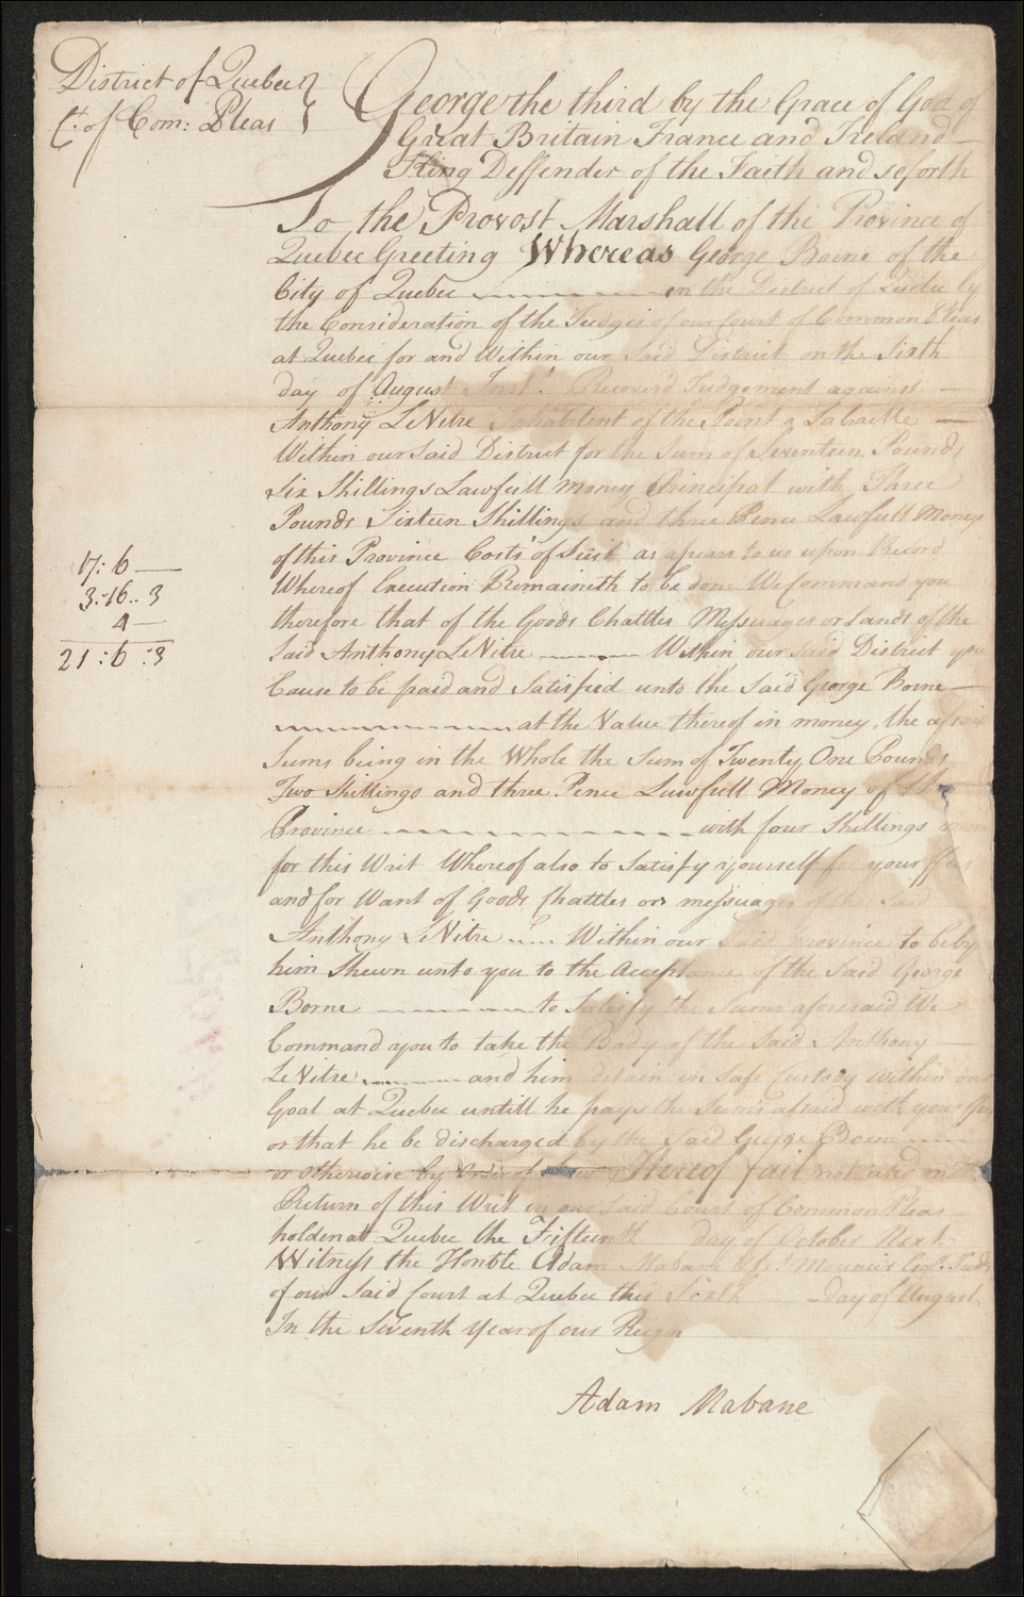 District of Quebec
Ct. of Com: Pleas
George the third by the Grace of God of
Great Britain France and Ireland
King Deffender of the Faith and soforth
To the Provost Marshall of the Province of
Quebec Greeting Whereas George Borne of the
City of Quebec in the District of Quebec by
the Consideration of the Judges of our Court of Common Pleas
at Quebec for and Within our Said District on the Sixth
day of August Inst. Recover'd Judgement against
Anthony LeVitre Inhabitent of the Point a La Caille
Within our Said District for the Sum of Seventeen Pounds
Six Shillings Lawfull money Principal with Three
Pounds Sixteen Shillings and three Pence Lawfull Money
of this Province Costs of Suit as apears to us upon Record
17: 6 —
Whereof Execution Remaineth to be done We Command you
3:-16.. 3
therefore that of the Goods Chattles Messuages or Lands of the
4 —
Said Anthony LeVitre Within our Said District you
21 : 6 : 3
Cause to be paid and Satisfied unto the Said George Borne
at the Value thereof in money, the
Sums being in the Whole the Sum of Twenty One Pounds
Two Shillings and three Pence Lawfull Money of
Province with four Shillings more
for this Writ Whereof also to Satisfy yourself for your ffees
and for Want of Goods Chattles or messuages of the Said
Anthony LeVitre Within our Said Province to be by
him Shewn unto you to the Acceptance of the Said George
Borne to Satisfy the Sums aforesaid We
Command you to take the Body of the Said Anthony
LeVitre and him detain in Safe Custody within our
Goal at Quebec untill he pays the Sums afsaid with your
or that he be discharged by the Said George Borne
or otherwise by Order of Hereof fail not and
Return of this Writ in our Said Court of Common Pleas
holden at Quebec the Fifteenth day of October Next
Witness the Honble Adam Mabane Mounier Esqr.
of our Said Court at Quebec this Sixth day of August
In the Seventh Year of our Reign
Adam Mabane